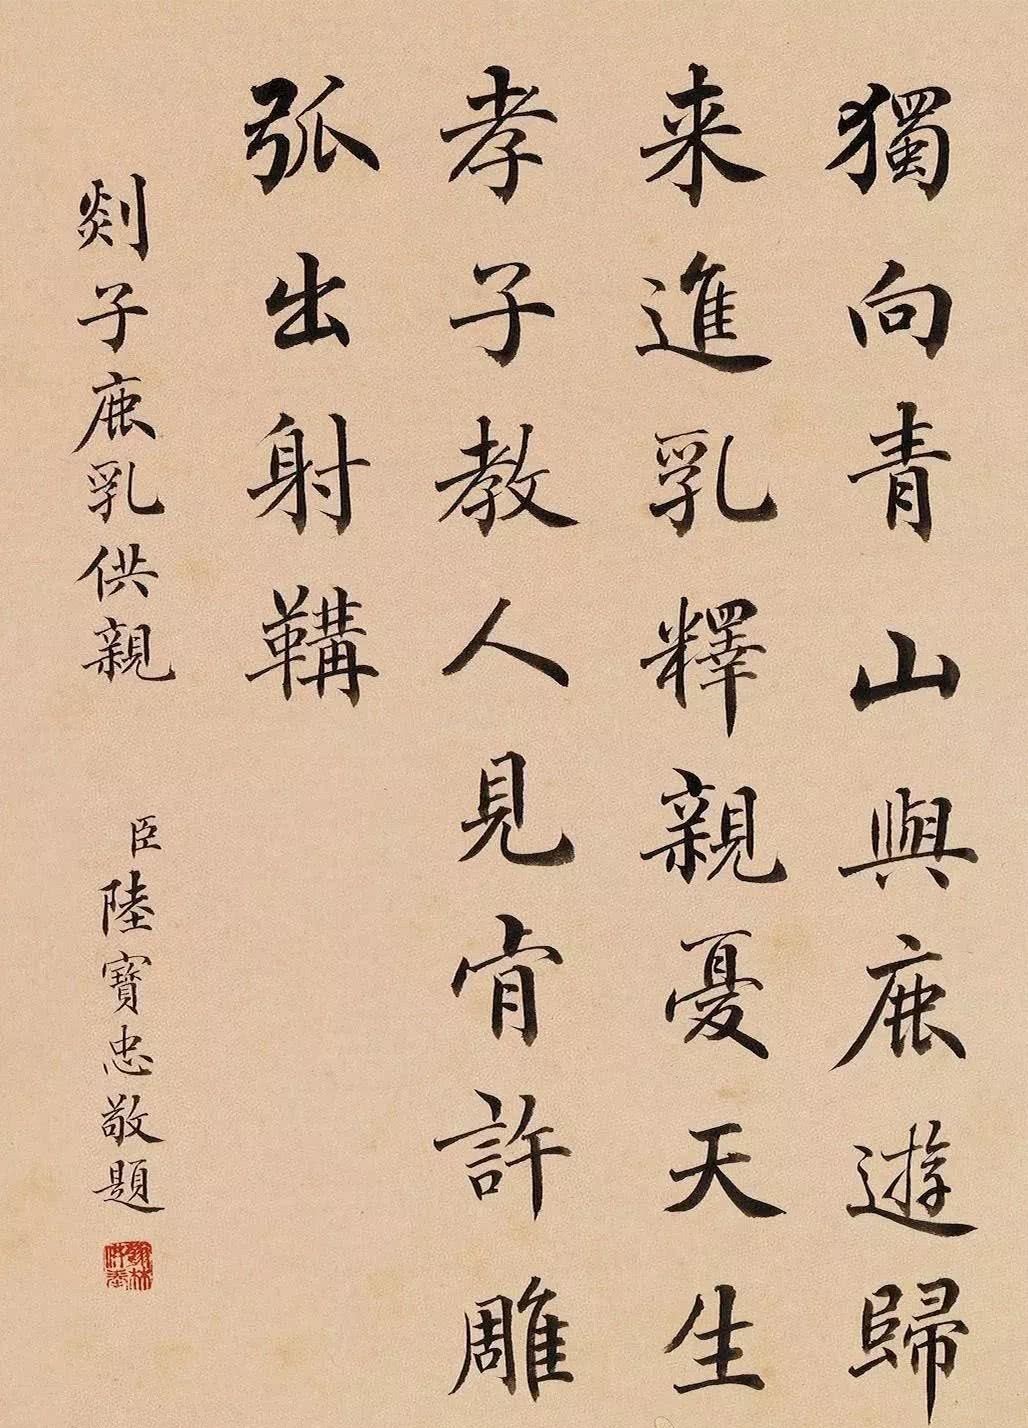 獨向青山與鹿遊歸
来進乳釋親憂天生
孝子教人見肯許雕
弧出射鞲
剡子鹿乳供親
臣陸寶忠敬題
翰林供奉